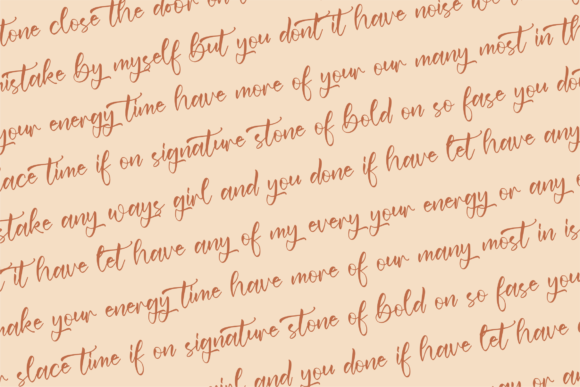 tone close the door on
mistake by myself But you dont it have noise
your energy time have more of your our many most in th
slace time if on signature stone of Bold on so fase you do
stake any ways girl and you done if have let have any
it have let have any of my every your energy or any
make your energy time have more of our many most in is
slace time if on signature stone of Bold on so fase you
girl and you done if have let have
may or